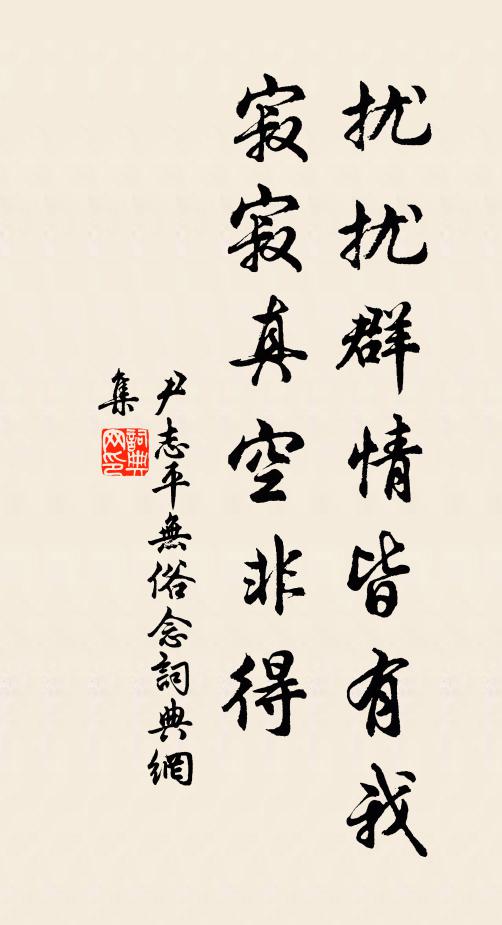 扰扰群情皆有我
寂寂真空非得
尹志平無俗念詞典網
集
詞典网印